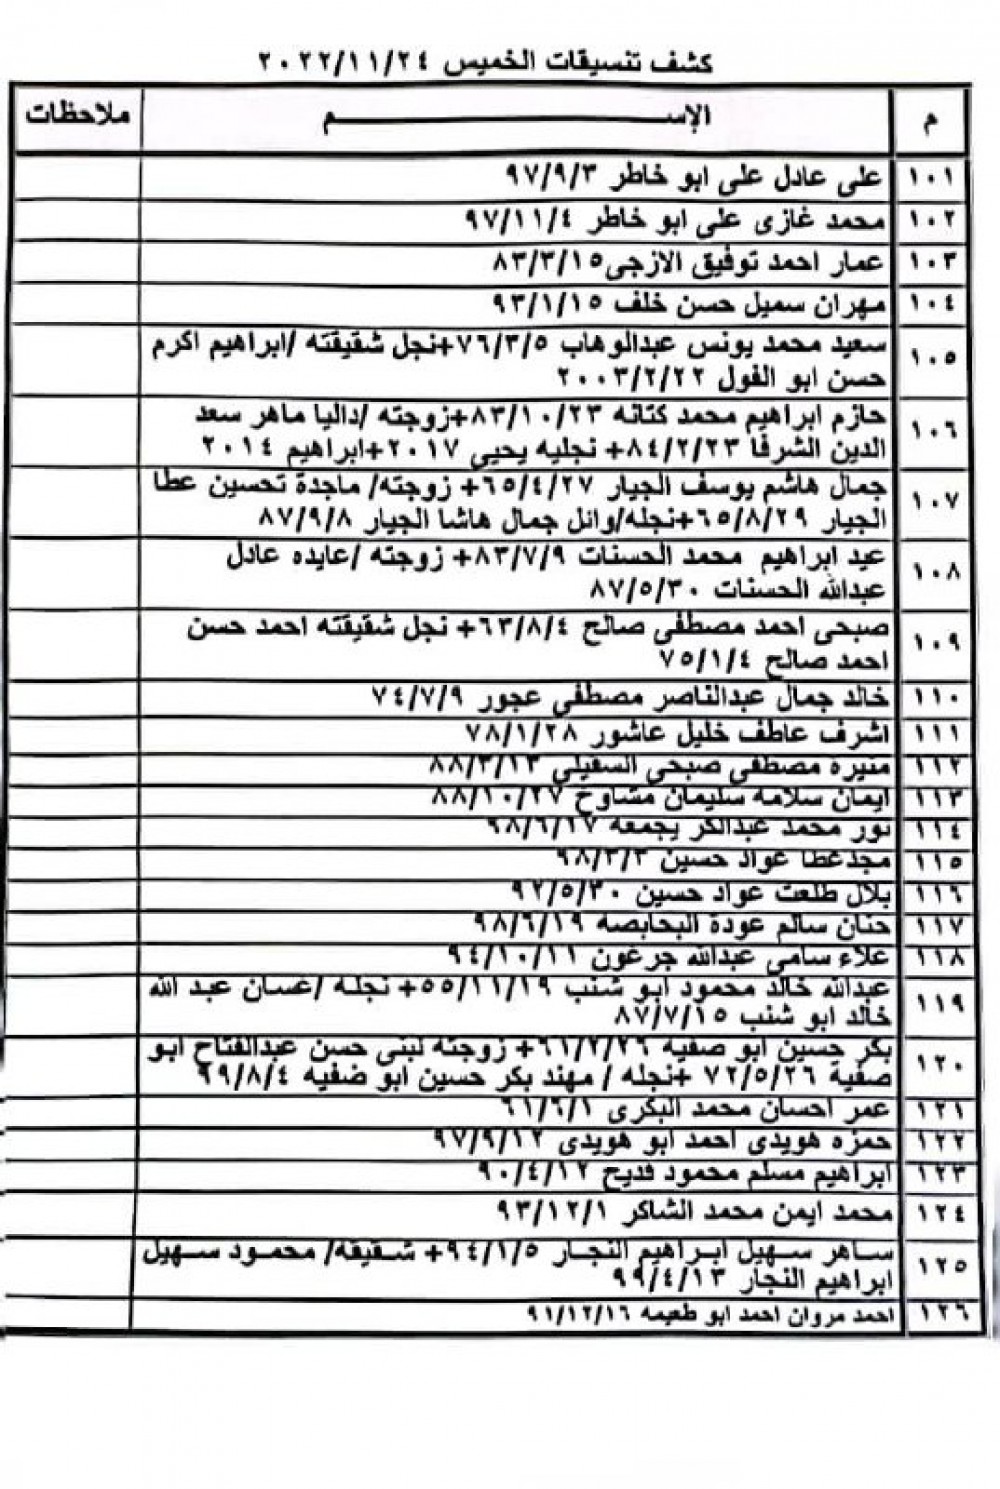 كشف تنسيقات الخميس ٢٠٢٢/١١/٢٤
م الإســـــــــــــم ملاحظات
١٠١ على عادل على ابو خاطر ٩٧/٩/٣
١٠٢ محمد غازى على ابو خاطر ٩٧/١١/٤
١٠٣ عمار احمد توفيق الازجى ٨٣/٣/١٥
١٠٤ مهران سميل حسن خلف ٩٣/١/١٥
١٠٥ سعيد محمد يونس عبدالوهاب ٧٦/٣/٥+نجل شقيقته /ابراهيم اكرم
حسن ابو الفول ٢٠٠٣/٢/٢٢
١٠٦ حازم ابراهيم محمد كتانه ٨٣/١٠/٢٣+زوجته /داليا ماهر سعد
الدين الشرفا ٨٤/٢/٢٣+ نجليه يحيي ٢٠١٧+ابراهيم ٢٠١٤
١٠٧ جمال هاشم يوسف الجيار ٦٥/٤/٢٧+ زوجته/ ماجدة تحسين عطا
الجيار ٦٥/٨/٢٩+نجله/وائل جمال هاشا الجيار ٨٧/٩/٨
١٠٨ عيد ابراهيم محمد الحسنات ٨٣/٧/٩+ زوجته /عايده عادل
عبدالله الحسنات ٨٧/٥/٣٠
١٠٩ صبحى احمد مصطفى صالح ٦٣/٨/٤+ نجل شقيقته احمد حسن
احمد صالح ٧٥/١/٤
١١٠ خالد جمال عبدالناصر مصطفى عجور ٧٤/٧/٩
١١١ اشرف عاطف خليل عاشور ٧٨/١/٢٨
١١٢ منيره مصطفى صبحى السفيلي ٨٨/٣/١٣
١١٣ ايمان سلامه سليمان مشاوخ ٨٨/١٠/٢٧
١١٤ نور محمد عبدالكر يجمعه ٩٨/٦/١٧
١١٥ مجدعطا عواد حسين ٩٨/٣/٣
١١٦ بلال طلعت عواد حسين ٩٢/٥/٣٠
١١٧ حنان سالم عودة البحابصه ٩٨/٦/١٩
١١٨ علاء سامى عبدالله جرغون ٩٤/١٠/١١
١١٩ عبدالله خالد محمود ابو شنب ٥٥/١١/١٩+ نجله /غسان عبد الله
خالد ابو شنب ٨٧/٧/١٥
١٢٠ بكر حسين ابو صفيه ٦١/٢/٢٦+ زوجته لبنى حسن عبدالفتاح ابو
صفية ٧٢/٥/٢٦ +نجله / مهند بكر حسين ابو ضفيه ٩٩/٨/٤
١٢١ عمر احسان محمد البكرى ٦١/٦/١
١٢٢ حمزه هويدى احمد ابو هويدى ٩٧/٩/١٢
١٢٣ ابراهيم مسلم محمود قديح ٩٠/٤/١٢
١٢٤ محمد ايمن محمد الشاكر ٩٣/١٢/١
١٢٥ ساهر سهيل ابراهيم النجار ٩٤/١/٥+ شقيقه/ محمود سهيل
ابراهيم النجار ٩٩/٤/١٣
١٢٦ احمد مروان احمد ابو طعيمه ٩١/١٢/١٦